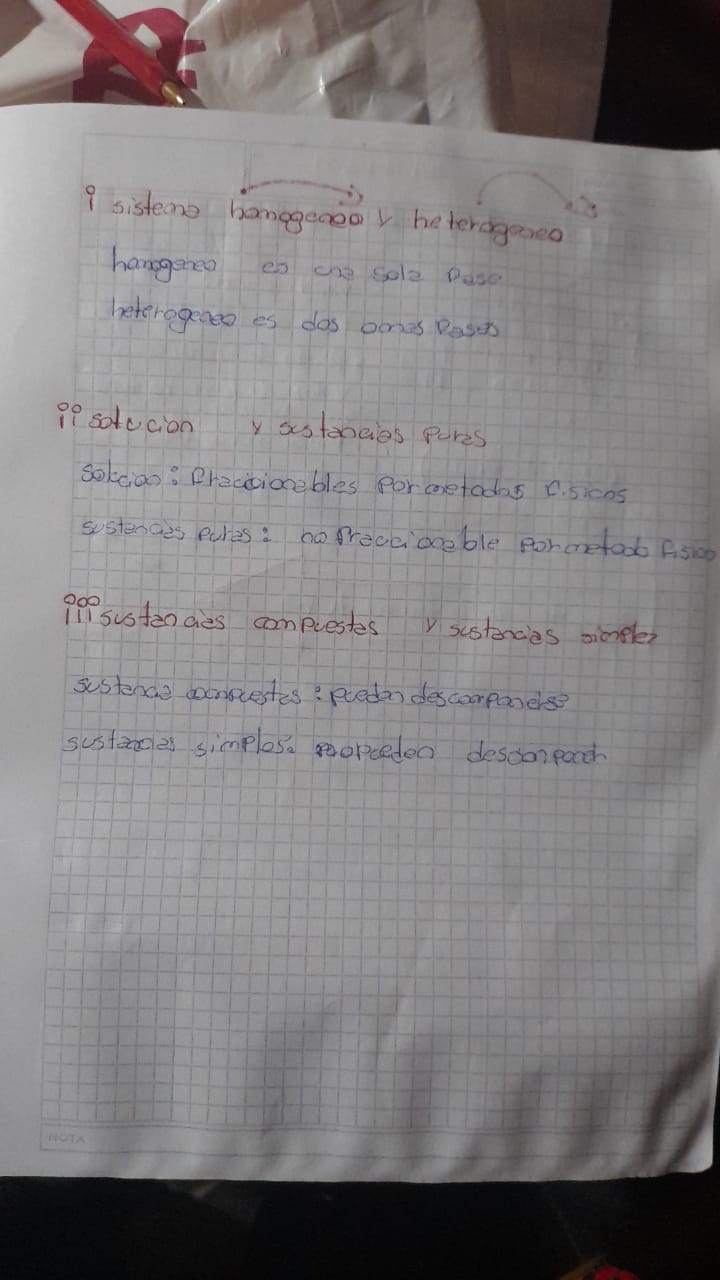 i sistema homogeneo y heterogeneo
homogeneo es una sola fase
heterogeneo es dos o mas fases
ii solucion y sustancias puras
Solucion: fraccionables por metodos fisicos
sustancias puras: no fraccionable por metodo fisico
iii sustancias compuestas y sustancias simples
sustancia compuestas: pueden descomponerse
sustancias simples: no pueden
NOTA